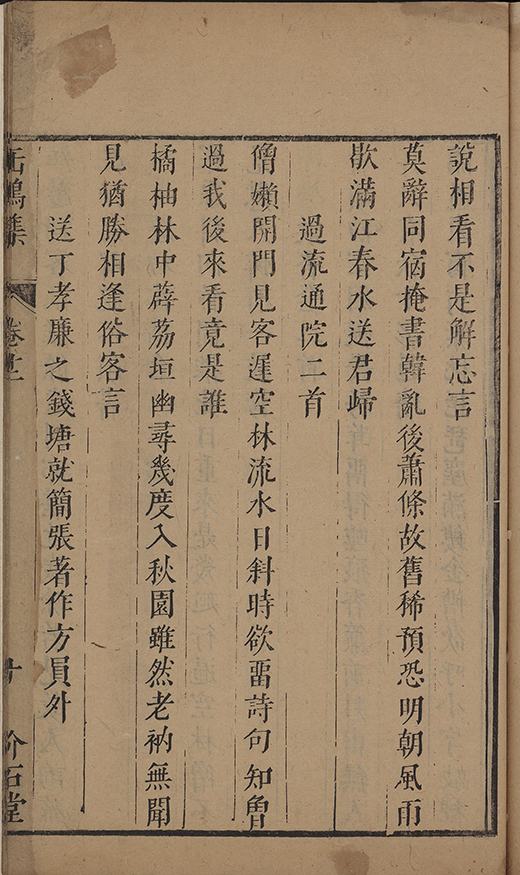 說相看不是解忘言
莫辭同宿掩書幃亂後蕭條故舊稀預恐明朝風雨
歇滿江春水送君歸
過流通院二首
僧嬾開門見客遲空林流水日斜時欲畱詩句知曾
過我後來看竟是誰
橘柚林中薜荔垣幽尋幾度入秋園雖然老衲無聞
見猶勝相逢俗客言
送丁孝廉之錢塘就簡張著作方員外
缶鳴集 卷十二 十 介石堂